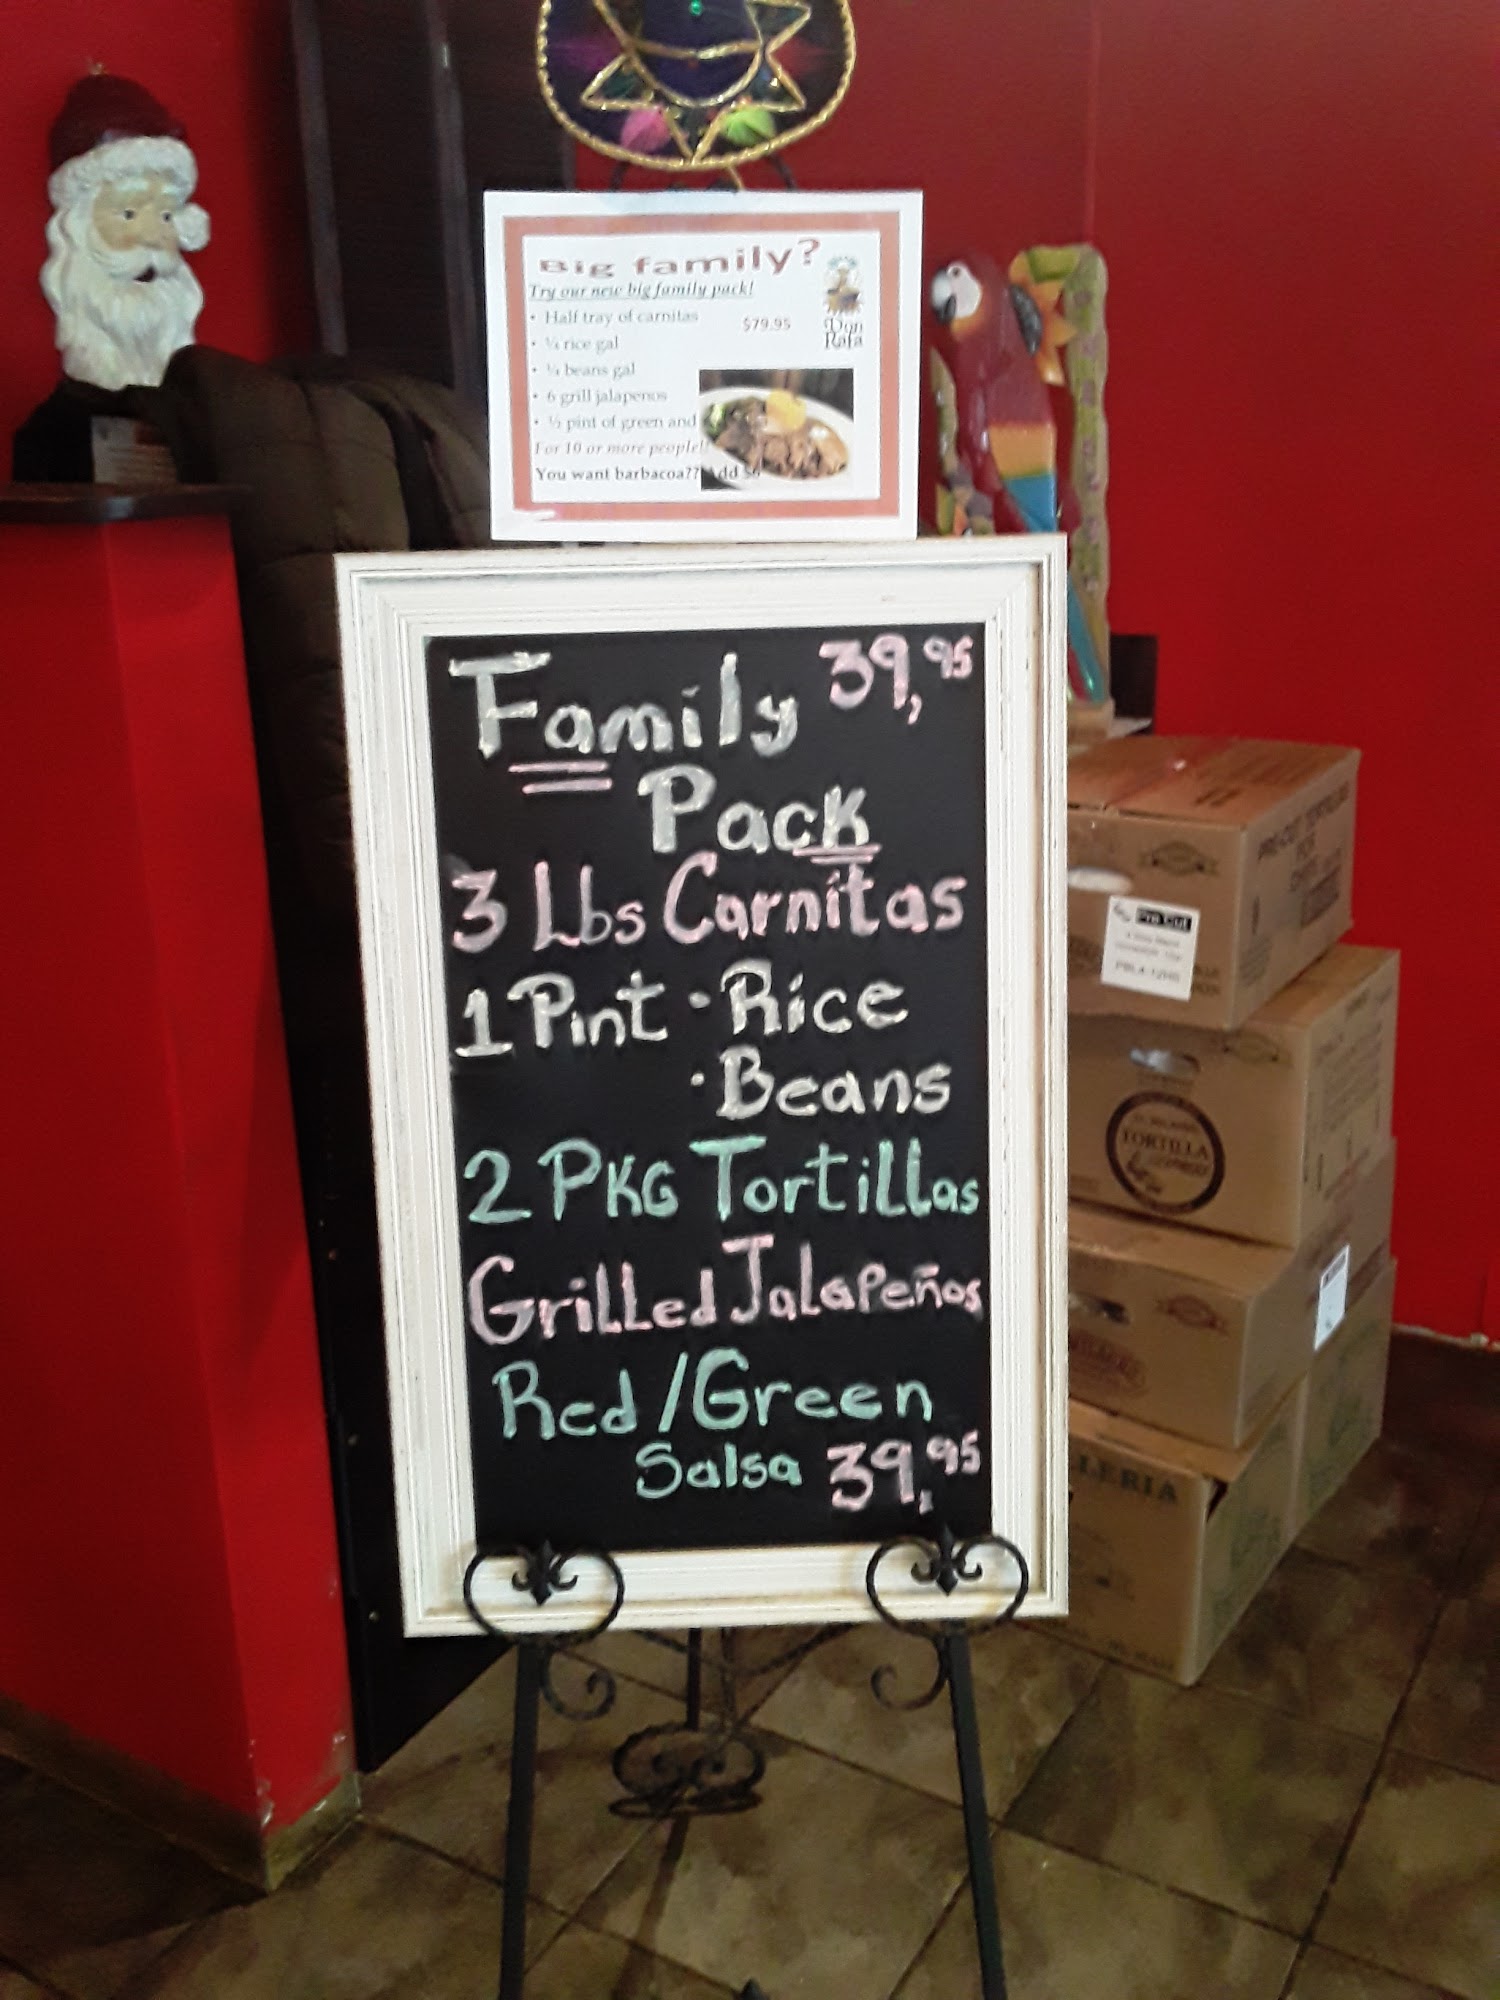 Big family?
Try our new big family pack!
• Half tray of carnitas
$79.95
Don
Rafa
• ¼ rice gal
• ¼ beans gal
• 6 grill jalapenos
• ½ pint of green and
For 10 or more people!!
You want barbacoa?? Add $6
Family 39,95
Pack
3 Lbs Carnitas
1 Pint • Rice
• Beans
2 PKG Tortillas
Grilled Jalapeños
Red / Green
Salsa 39,95
PRE-CUT TORTILLAS
FOR
Pre Cut
TORTILLA